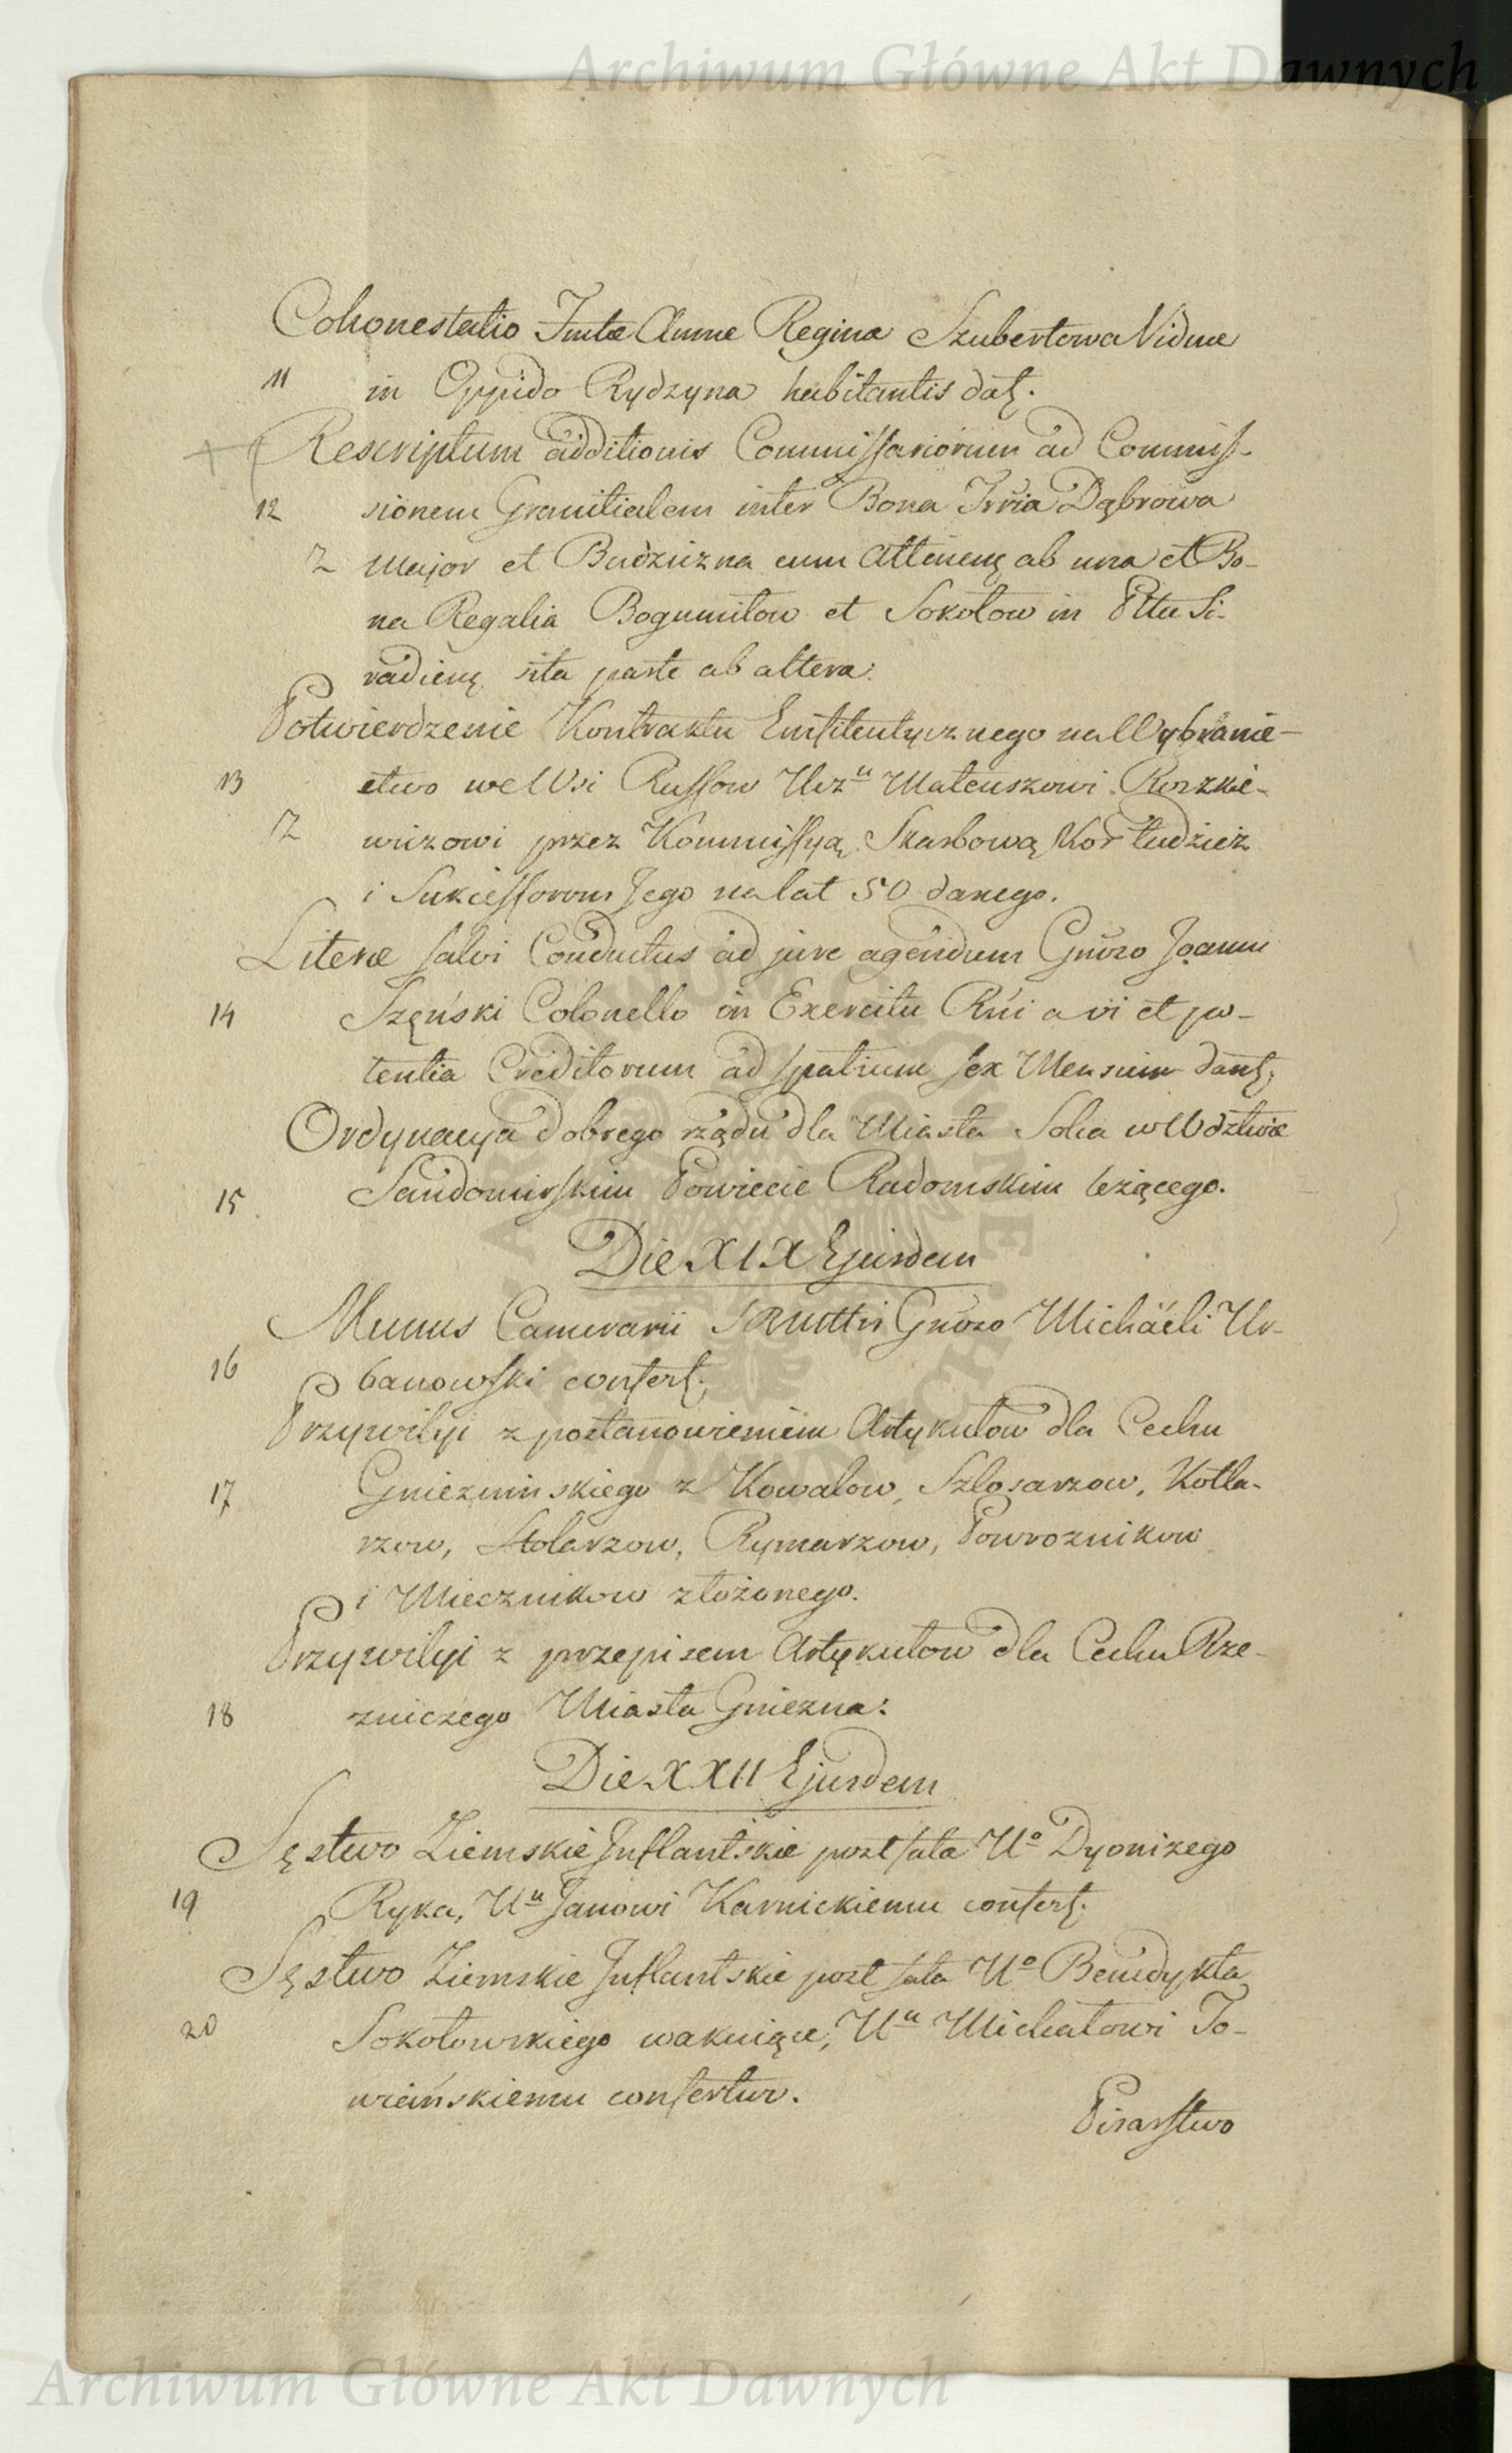 Archiwum Główne Akt Dawnych
Cohonestatio Fmtæ Annæ Regina Szubertowa Viduæ
11 in Oppido Rydzyna habitantis dat.
Rescriptum additionis Commissariorum ad Commis-
12 sionem Granitialem inter Bona Dąbrowa
Z Major et Budziczna cum Attinen ab una et Bo-
na Regalia Bogumiłow et Sokołow in Pttu Si-
radien sita parte ab altera.
Potwierdzenie Kontraktu Emfiteutycznego na Wybranie-
13 ctwo we Wsi Russow Urz Mateuszowi Roszkie-
Z wiczowi przez Kommissyą Skarbową Kor tudzież
i Sukcessorom Jego na lat 50 danego.
Literæ salvi Conductus ad jure agendum Gnoso Joanni
14 Szęński Colonello in Exercitu Rni a vi et po-
tentia Creditorum ad spatium sex Mensium dant.
Ordynacya dobrego rządu dla Miasta Solca w Wdztwie
15. Sandomirskim Powiecie Radomskim leżącego.
Die XIX Ejusdem
Munus Camerarii SRMttis Gnoso Michäeli Ur-
16 banowski confert.
Przywilyi z postanowieniem Artykułow dla Cechu
17 Gniezninskiego z Kowalow, Szlosarzow, Kotla-
rzow, Stolarzow, Rymarzow, Powroznikow
i Miecznikow złożonego.
Przywilyi z przepisem Artykułow dla Cechu Rze-
18 zniczego Miasta Gniezna.
Die XXII Ejusdem
Sęstwo Ziemskie Inflantskie post fata Uº Dyonizego
19 Ryka, Uu Janowi Karnickiemu confert.
Sęstwo Ziemskie Inflantskie post fata Uº Benedykta
20 Sokołowskiego wakuiące, Uu Michałowi To-
wiańskiemu confertur.
Pisarstwo
Archiwum Główne Akt Dawnych